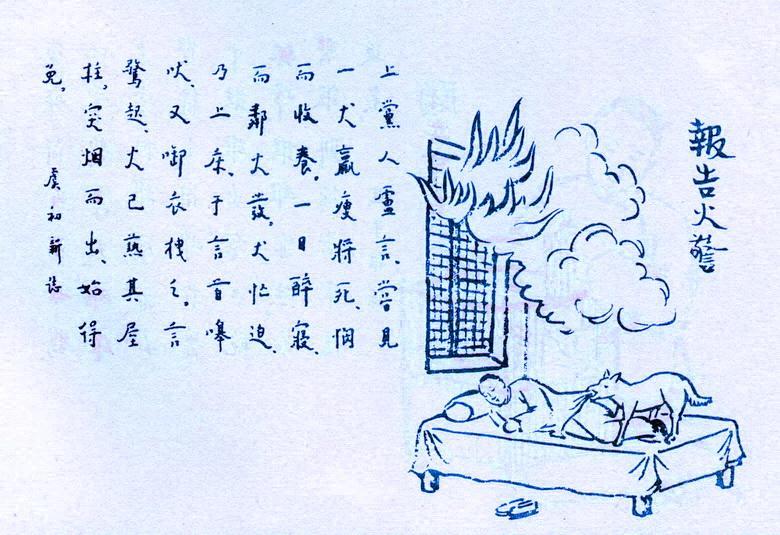 報告火警
上黨人盧言、嘗見
一犬羸瘦將死、憫
而收養。一日醉寢、
而鄰火發。犬忙迫、
乃上床、于言首嘷
吠、又啣衣拽之。言
驚起、火已熱其屋
柱。突烟而出、始得
免。
虞初新誌